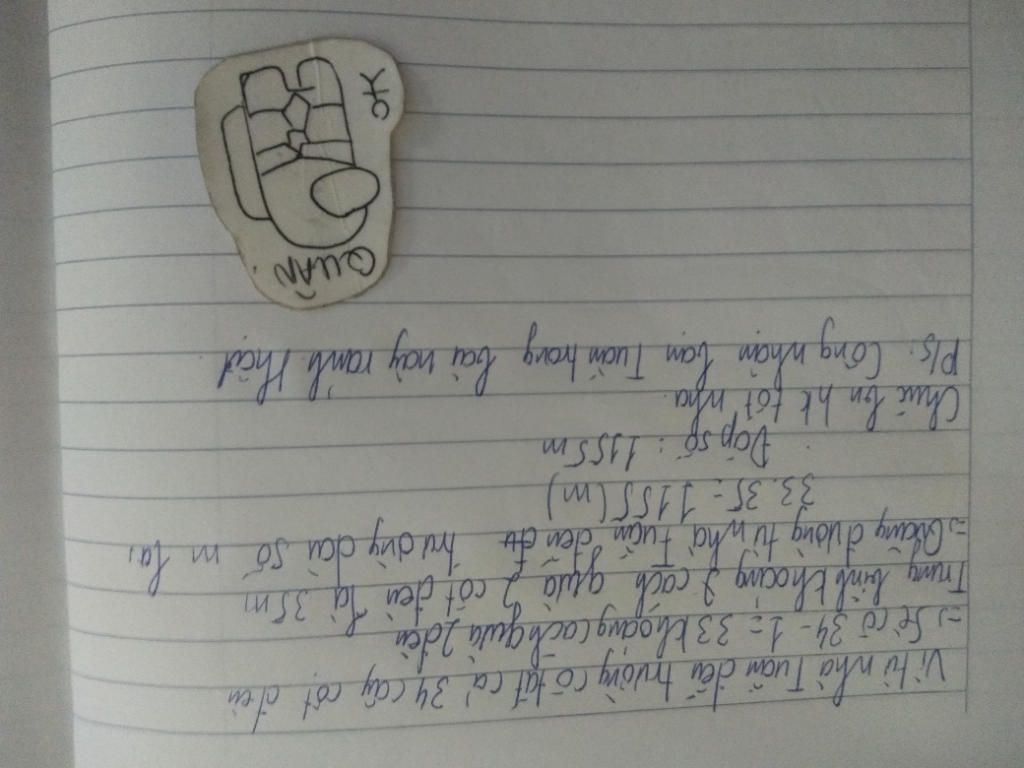 Vì từ nhà Tuấn đến trường có tất cả 34 cây cột đèn
=> Sẽ có 34 - 1 = 33 khoảng cách giữa 2 đèn
Trung bình khoảng cách giữa 2 cột đèn là 35 m
=> Quãng đường từ nhà Tuấn đến trường dài số m là:
33.35 = 1155 (m)
Đáp số: 1155 m
Chúc bn hk tốt nha.
P/s: Công nhận bạn Tuấn trong bài này rảnh thật
QUÂN.
OK